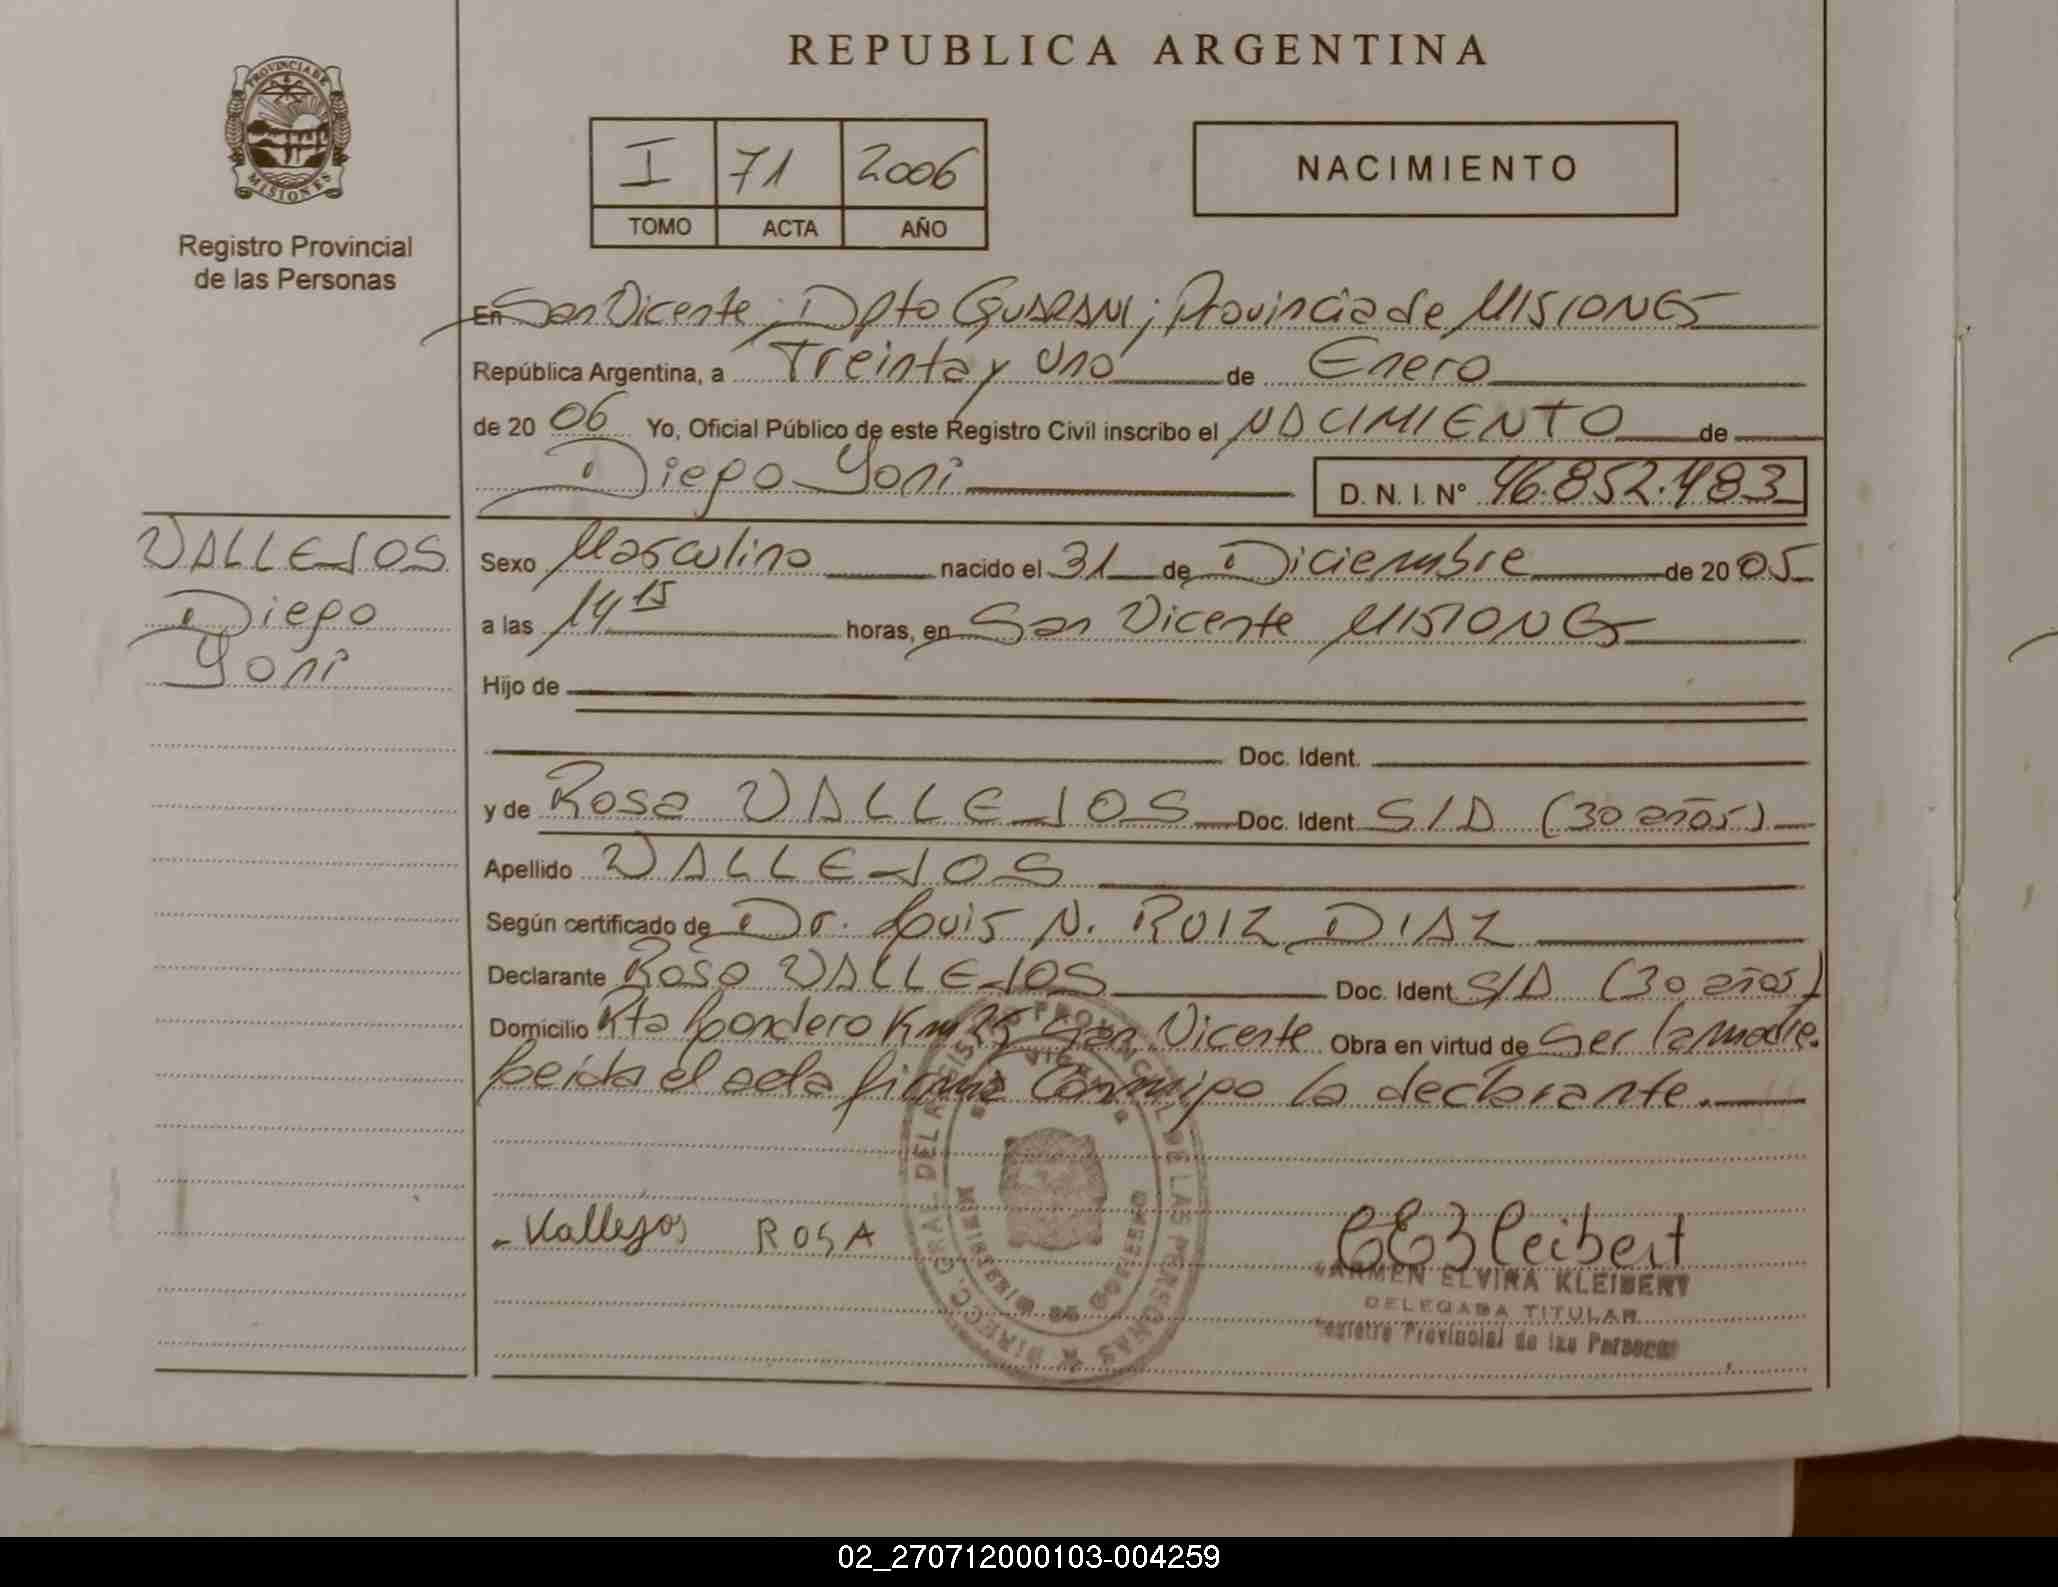 REPUBLICA ARGENTINA
PROVINCIA DE
MISIONES
Registro Provincial
de las Personas
I 71 2006
TOMO ACTA AÑO
NACIMIENTO
En San Vicente; Dpto GUARANI; Provincia de MISIONES
República Argentina, a Treinta y Uno de Enero
de 20 06 Yo, Oficial Público de este Registro Civil inscribo el NACIMIENTO de
Diego Yoni D. N. I. Nº 46.852.483
VALLEJOS
Diego
Yoni
Sexo Masculino nacido el 31 de Diciembre de 20 05
a las 14 15 horas, en San Vicente MISIONES
Hijo de
Doc. Ident.
y de Rosa VALLEJOS Doc. Ident. S/D (30 años)
Apellido VALLEJOS
Según certificado de Dr. Luis N. RUIZ DIAZ
Declarante Rosa VALLEJOS Doc. Ident. S/D (30 años)
Domicilio Rta Km San Vicente Obra en virtud de Ser la madre.
Leída el acta firma Conmigo la declarante.
Vallejos ROSA
DIRECC. GRAL. DEL REGISTRO PROVINCIAL DE LAS PERSONAS
MINISTERIO DE GOBIERNO
CEKleibert
CARMEN ELVIRA KLEIBERT
DELEGADA TITULAR
Registro Provincial de las Personas
02_270712000103-004259